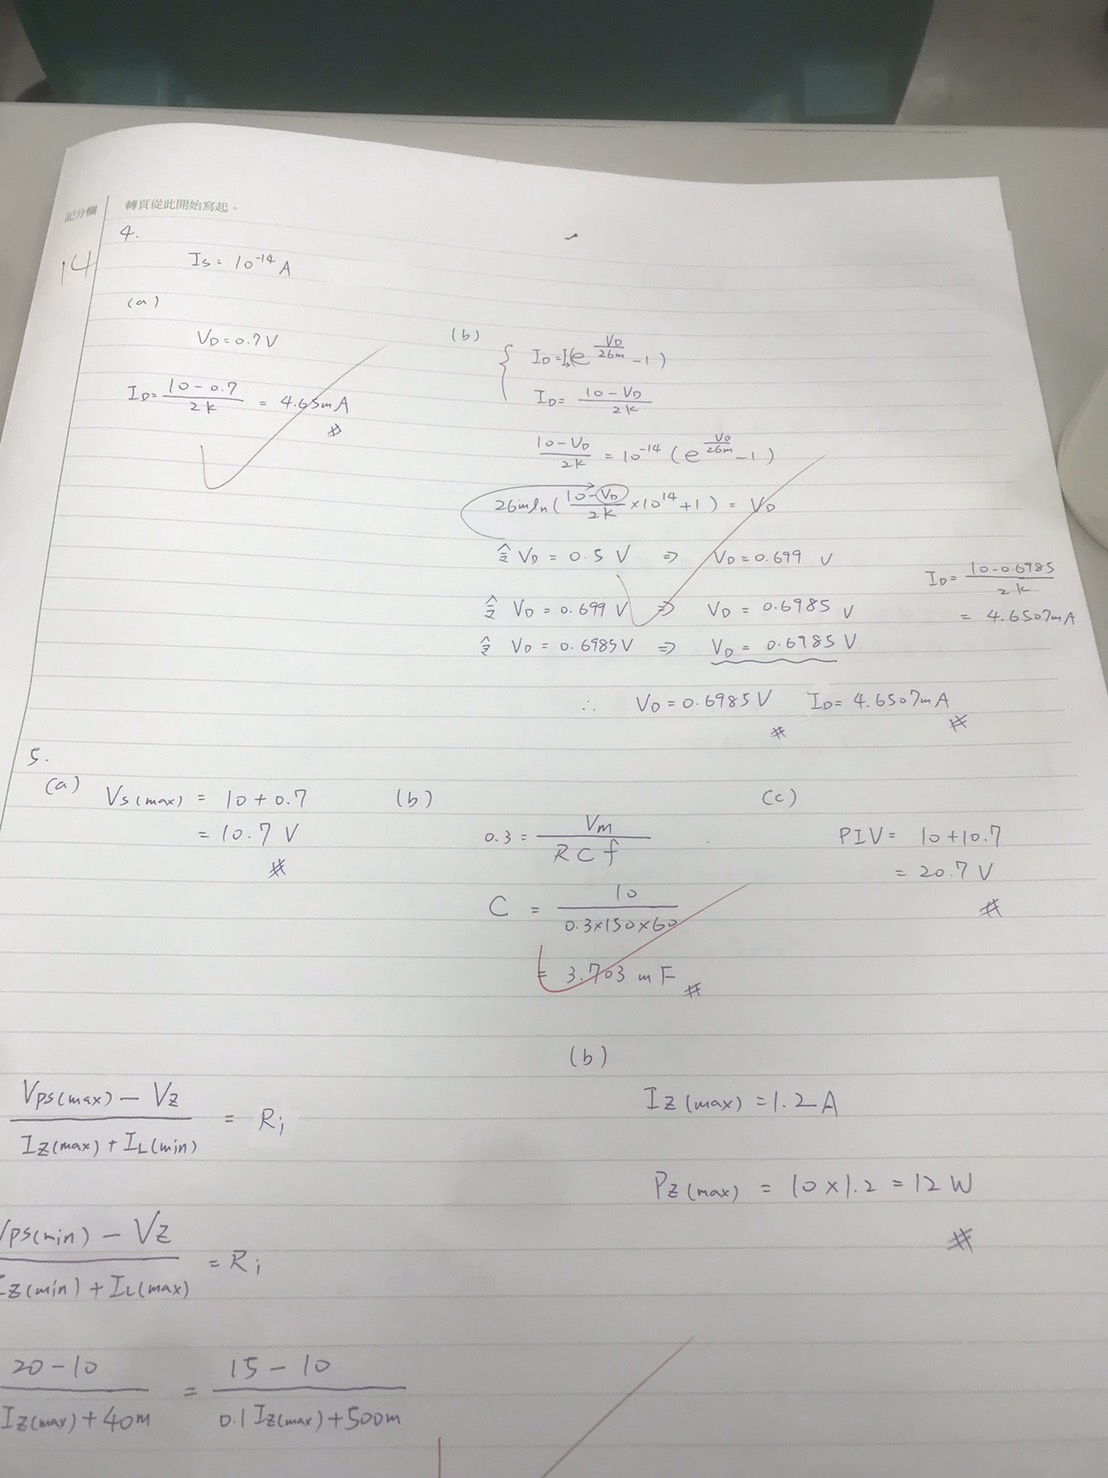 記分欄
轉頁從此開始寫起。
14
4.
Is = 10^-14 A
(a)
VD = 0.7V
ID = (10 - 0.7)/2k = 4.65mA
(b)
ID = Is(e^(VD/26m) - 1)
ID = (10 - VD)/2k
(10 - VD)/2k = 10^-14 (e^(VD/26m) - 1)
26m ln((10 - VD)/2k × 10^14 + 1) = VD
令 VD = 0.5 V ⇒ VD = 0.699 V
令 VD = 0.699 V ⇒ VD = 0.6985 V
令 VD = 0.6985 V ⇒ VD = 0.6985 V
ID = (10 - 0.6985)/2k
= 4.6507mA
∴ VD = 0.6985 V ID = 4.6507mA
#
#
5.
(a) Vs(max) = 10 + 0.7
= 10.7 V
#
(b)
0.3 = Vm/(RCf)
C = 10/(0.3×150×60)
= 3.703 mF
#
(c)
PIV = 10 + 10.7
= 20.7 V
#
(Vps(max) - Vz)/(Iz(max) + IL(min)) = Ri
(Vps(min) - Vz)/(Iz(min) + IL(max)) = Ri
(20 - 10)/(Iz(max) + 40m) = (15 - 10)/(0.1 Iz(max) + 500m)
(b)
Iz(max) = 1.2A
Pz(max) = 10 × 1.2 = 12 W
#